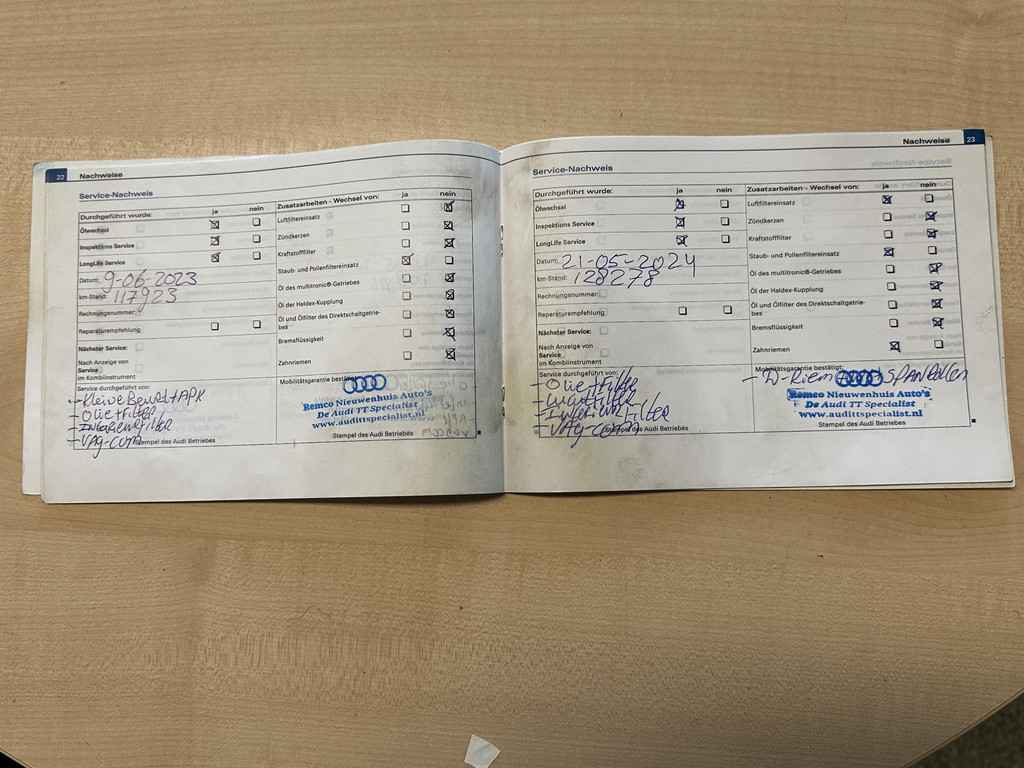 22 Nachweise
Service-Nachweis
Durchgeführt wurde: ja nein
Ölwechsel
Inspektions Service
LongLife Service
Datum: 9-06-2023
km-Stand: 117923
Rechnungsnummer:
Reparaturempfehlung
Nächster Service:
Nach Anzeige von
Service
im Kombiinstrument
Zusatzarbeiten - Wechsel von: ja nein
Luftfiltereinsatz
Zündkerzen
Kraftstofffilter
Staub- und Pollenfiltereinsatz
Öl des multitronic®-Getriebes
Öl der Haldex-Kupplung
Öl und Ölfilter des Direktschaltgetrie-
bes
Bremsflüssigkeit
Zahnriemen
Service durchgeführt von:
- Kleine Beurt + APK
- Olie + Filter
- Interieurfilter
- VAG-com
Mobilitätsgarantie bestätigt:
Remco Nieuwenhuis Auto's
De Audi TT Specialist
www.audittspecialist.nl
Stempel des Audi Betriebes
Nachweise 23
Service-Nachweis
Durchgeführt wurde: ja nein
Ölwechsel
Inspektions Service
LongLife Service
Datum: 21-05-2024
km-Stand: 128278
Rechnungsnummer:
Reparaturempfehlung
Nächster Service:
Nach Anzeige von
Service
im Kombiinstrument
Zusatzarbeiten - Wechsel von: ja nein
Luftfiltereinsatz
Zündkerzen
Kraftstofffilter
Staub- und Pollenfiltereinsatz
Öl des multitronic®-Getriebes
Öl der Haldex-Kupplung
Öl und Ölfilter des Direktschaltgetrie-
bes
Bremsflüssigkeit
Zahnriemen
Service durchgeführt von:
- Olie + Filter
- Luchtfilter
- Interieurfilter
- VAG-com
Mobilitätsgarantie bestätigt:
- D-Riem + Spanrollen
Remco Nieuwenhuis Auto's
De Audi TT Specialist
www.audittspecialist.nl
Stempel des Audi Betriebes